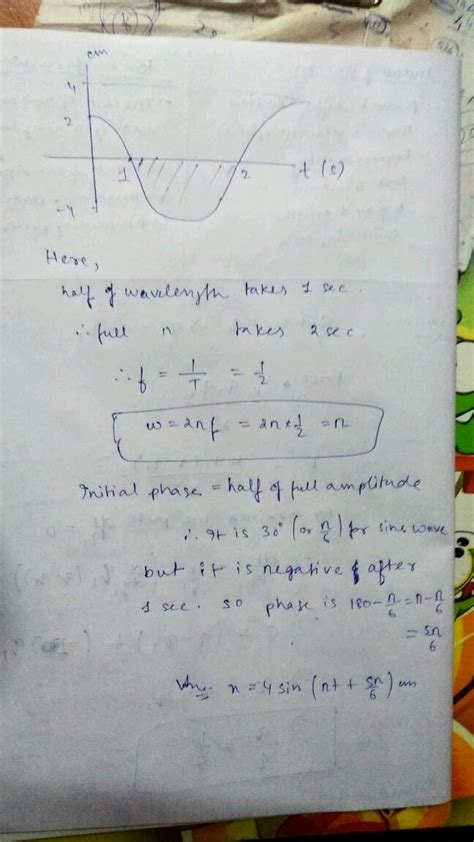 cm
4
2
1
2
t (s)
-4
Here,
half of wavelength takes 1 sec.
∴ full " takes 2 sec.
∴ f = 1/T = 1/2
ω = 2πf = 2π × 1/2 = π
Initial phase = half of full amplitude
∴ It is 30° (or π/6) for sine wave
but it is negative & after
1 sec. so phase is 180 - π/6 = π - π/6
= 5π/6
Ans. x = 4 sin (πt + 5π/6) cm